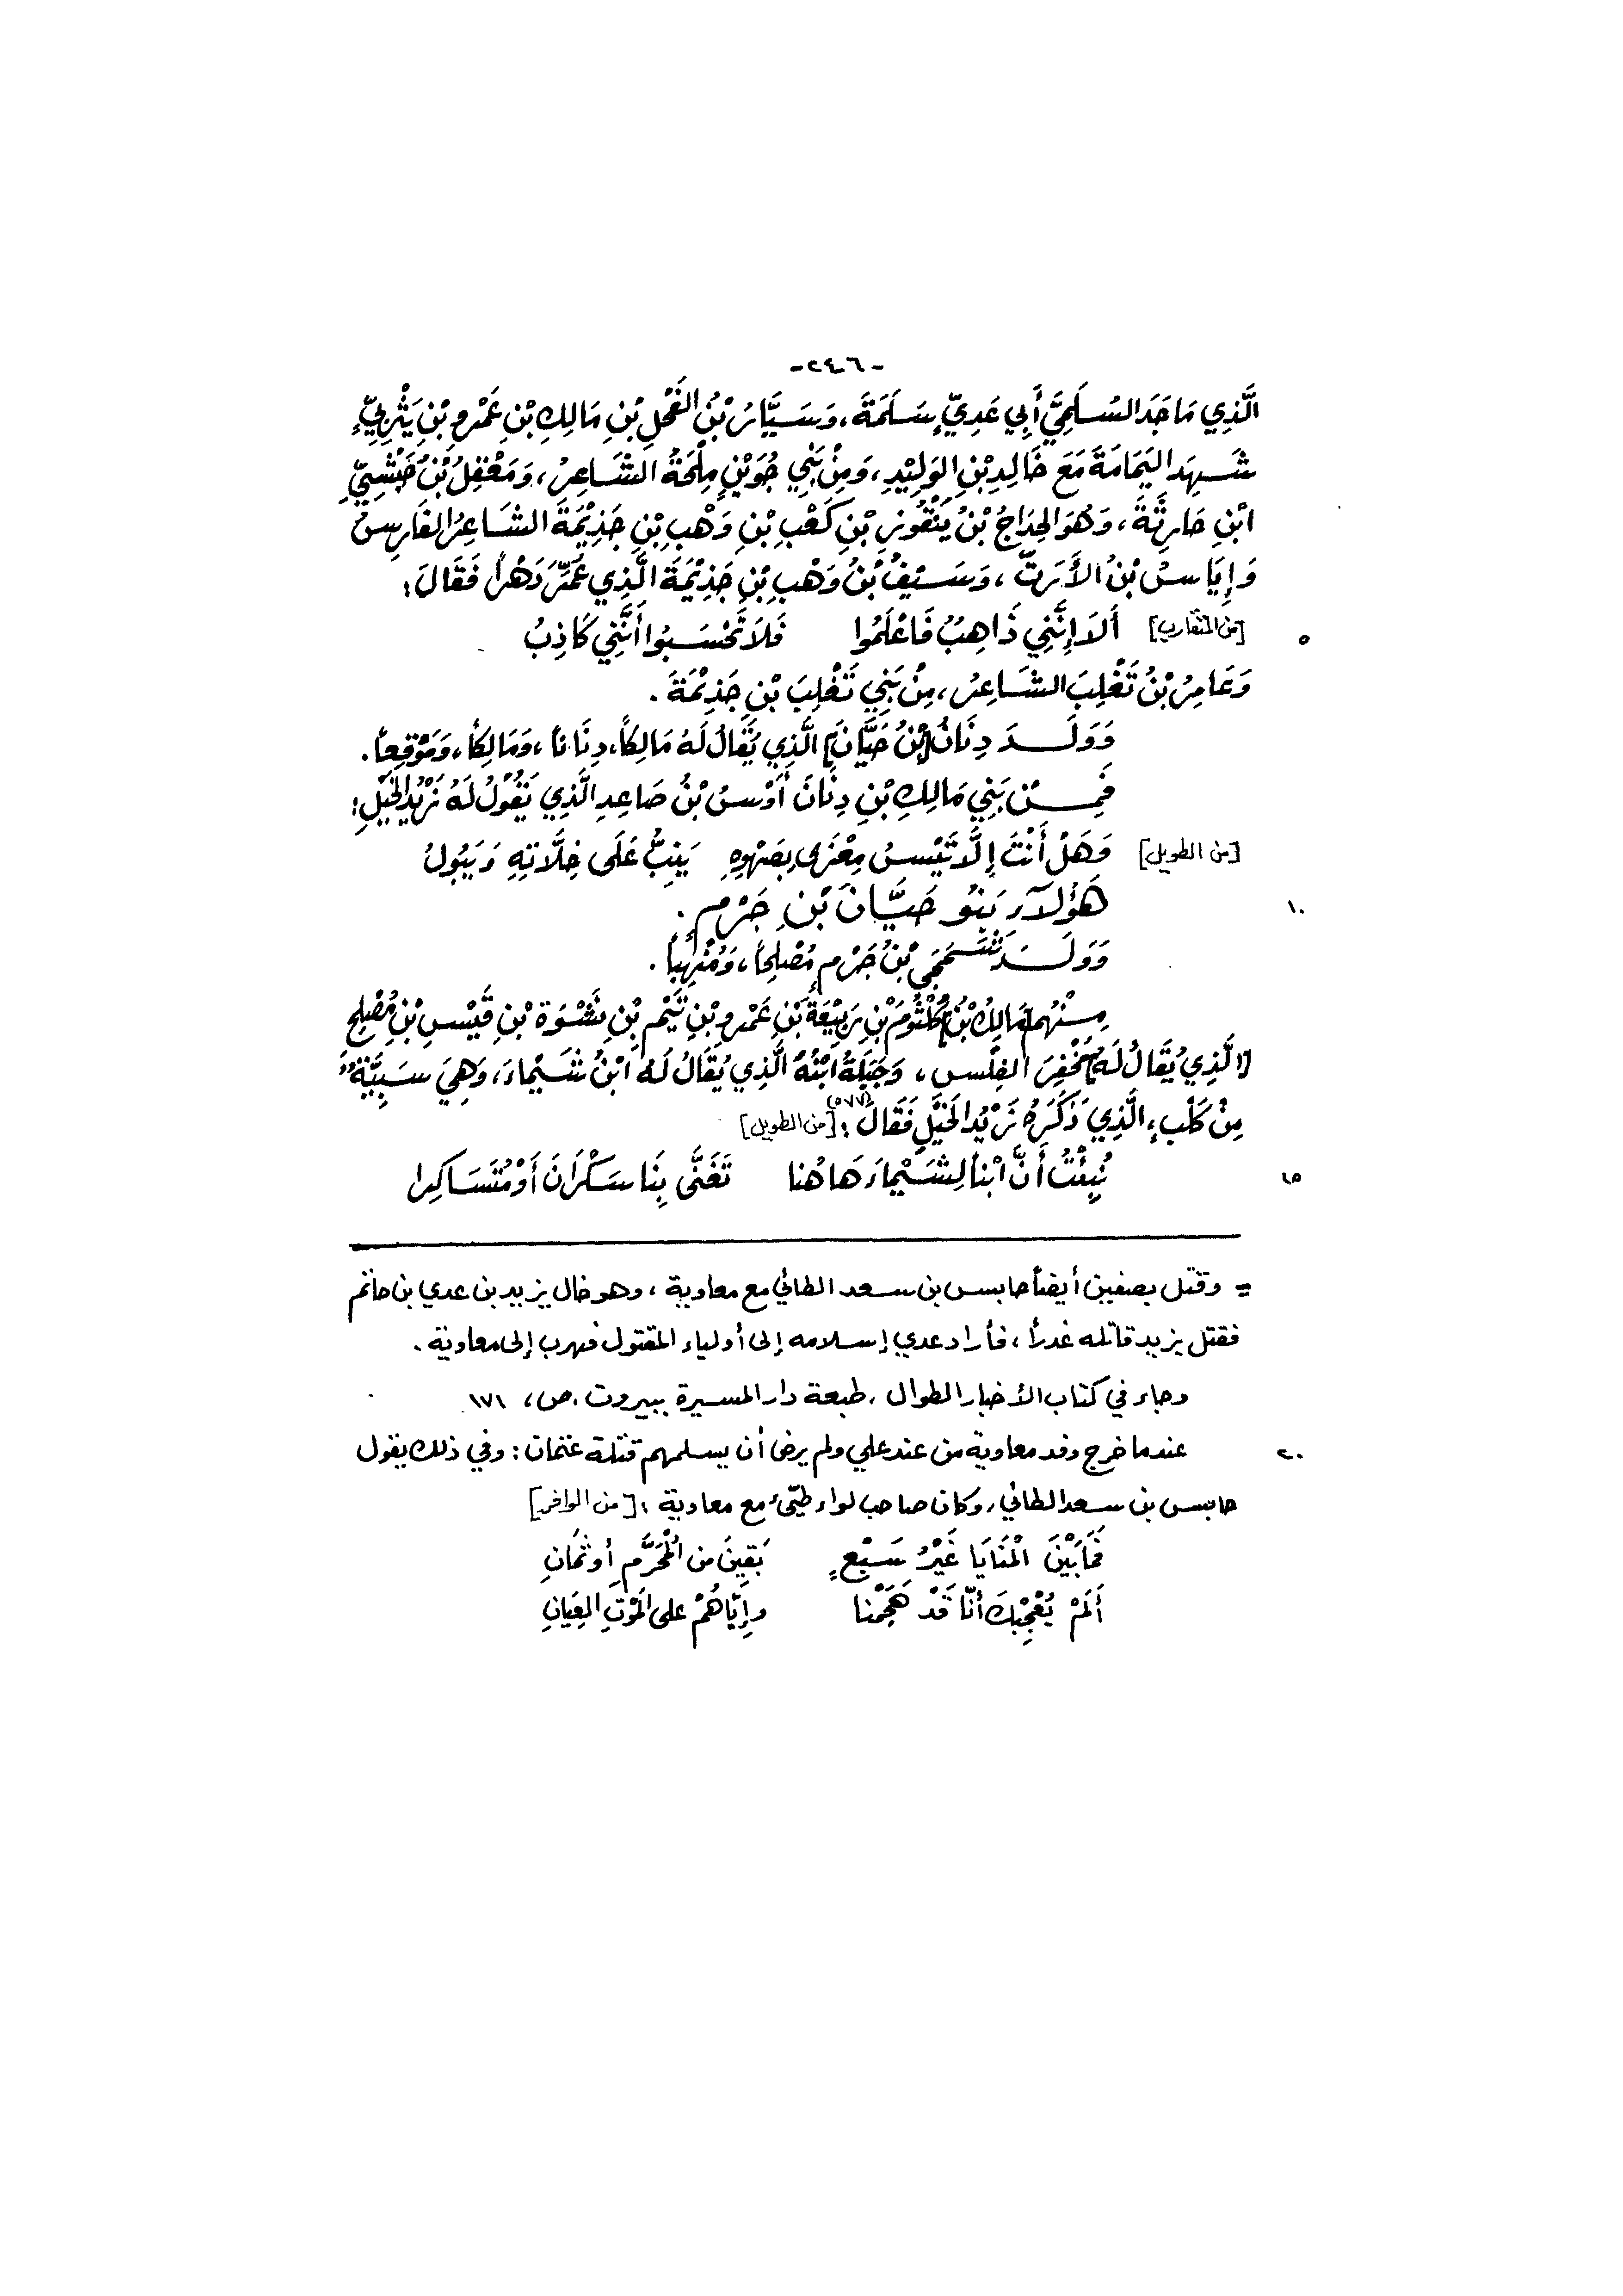 -٢٤٦-
الَّذِي مَاجَدَ السُّلَمِيَّ أَبِي عَدِيِّ سَلَمَةَ، وَسَيَّارُ بْنُ الفَحْلِ بْنِ مَالِكِ بْنِ عَمْرِو بْنِ يَثْرِبِيٍّ
شَهِدَ اليَمَامَةَ مَعَ خَالِدِ بْنِ الوَلِيْدِ، وَمِنْ بَنِي جُوَيْنٍ مِلْحَةُ الشَّاعِرُ، وَمَعْقِلُ بْنُ
ابْنِ حَارِثَةَ، وَهُوَ الجِدَاجُ بْنُ بْنِ كَعْبِ بْنِ وَهْبِ بْنِ جَذِيْمَةَ الشَّاعِرُ الفَارِسُ
وَإِيَاسُ بْنُ الأَرَتِّ، وَسَيْفُ بْنُ وَهْبِ بْنِ جَذِيْمَةَ الَّذِي عُمِّرَ دَهْراً فَقَالَ:
[من المتقارب] أَلاَ إِنَّنِي ذَاهِبٌ فَاعْلَمُوا فَلاَ تَحْسَبُوا أَنَّنِي كَاذِبُ ٥
وَعَامِرُ بْنُ تَغْلِبَ الشَّاعِرُ، مِنْ بَنِي تَغْلِبَ بْنِ جَذِيْمَةَ.
وَوَلَدَ دِنَانُ [بْنُ حَيَّانَ] الَّذِي يُقَالُ لَهُ مَالِكاً، دِنَاناً، وَمَالِكاً، وَمَوْقِعاً.
فَمِنْ بَنِي مَالِكِ بْنِ دِنَانَ أَوْسُ بْنُ صَاعِدِ الَّذِي يَقُوْلُ لَهُ زَيْدُ الخَيْلِ:
[من الطويل] وَهَلْ أَنْتَ إِلَّا تَيْسُ مِعْزَى بِصَهْوِهِ يَنِبُّ عَلَى خِلَّاتِهِ وَيَبُولُ
هَؤُلآءِ بَنُو حَيَّانَ بْنِ جَرْمٍ. ١٠
وَوَلَدَ شَمَجَى بْنُ جَرْمٍ مُصْلِحاً، وَمُنْهِباً.
مِنْهُم [مَالِكُ بْنُ] كُلْثُومَ بْنِ رَبِيْعَةَ بْنِ عَمْرِو بْنِ تَيْمِ بْنِ نَشْوَةَ بْنِ قَيْسِ بْنِ مُصْلِحِ
[الَّذِي يُقَالُ لَهُ] مُخْفِرَ الفِلْسِ، وَجَبَلَةُ ابْنُهُ الَّذِي يُقَالُ لَهُ ابْنُ شَيْماءَ، وَهِيَ سَبِيَّةٌ
مِنْ كَلْبٍ، الَّذِي ذَكَرَهُ زَيْدُ الخَيْلِ فَقَالَ(٥٧٧): [من الطويل]
نُبِئْتُ أَنَّ ابْناً لِشَيْماءَ هَاهُنَا تَغَنَّى بِنَا سَكْرَانَ أَوْ مُتَسَاكِرا ١٥
= وقتل بصفين أيضاً حابس بن سعد الطائي مع معاوية، وهو خال يزيد بن عدي بن حاتم
فقتل يزيد قاتله غدراً، فأراد عدي إسلامه إلى أولياء المقتول فهرب إلى معاوية.
وجاء في كتاب الأخبار الطوال، طبعة دار المسيرة ببيروت، ص، ١٧١
عندما خرج وفد معاوية من عند علي ولم يرض أن يسلمهم قتلة عثمان: وفي ذلك يقول ٢٠
حابس بن سعد الطائي، وكان صاحب لواء طيّئ مع معاوية: [من الوافر]
فَمَا بَيْنَ الْمَنَايَا غَيْرُ سَبْعٍ بَقِينَ من الْمُحَرَّمِ أو ثَمَانِ
أَلَمْ يُعْجِبْكَ أنّا قَدْ هَجَمْنا وإِيّاهُمْ على المَوْتِ العِيَانِ